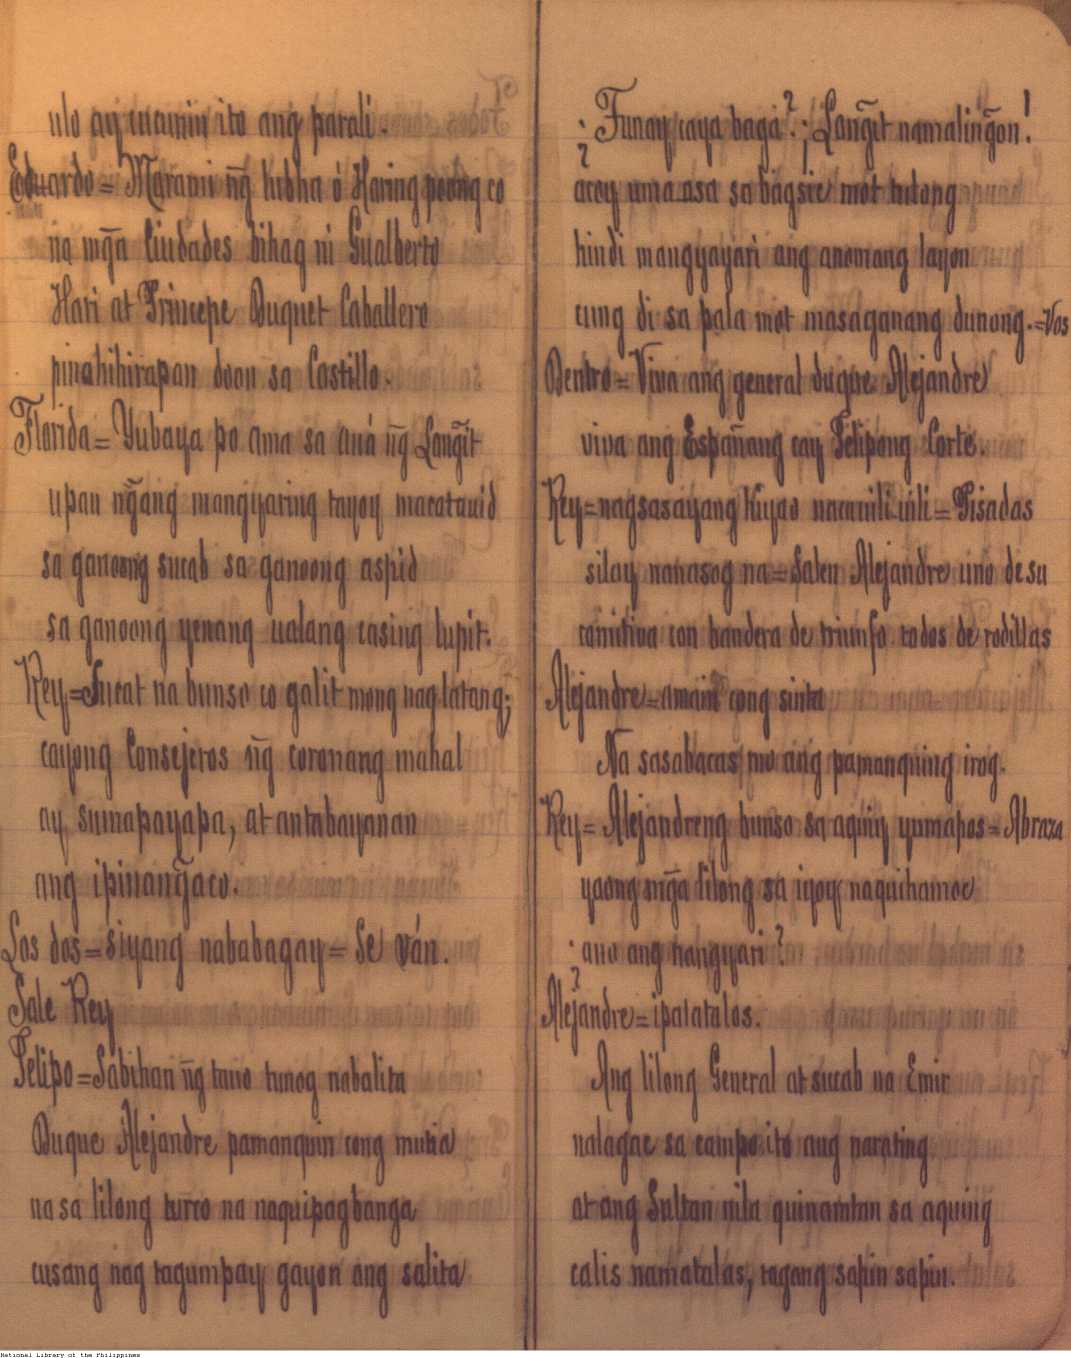 ulo ay cucunin ito ang parali.
Eduardo = Marami ñg lubha ó Haring poong co
na mg̃a Ciudades bihag ni Gualberto
Hari at Principe Duquet Caballero
pinahihirapan doon sa Castillo.
Florida = Yubaya po ama sa auá ñg Lang̃it
upan ng̃ang mangyaring tayoy macatauid
sa ganoong sucab sa ganoong aspid
sa ganoong yenang ualang casing lupit.
Rey = Sucat na bunso co galit mong nag latang;
cayong Consejeros ñg coronang mahal
ay sumapayapa, at antabayanan
ang ipinang̃aco.
Los dos = siyang nababagay = Se ván.
Sale Rey
Felipo = Sabihan ñg tauo tunog nabalita
Duque Alejandre pamanquin cong mutia
na sa lilong turco na naquipagbanga
cusang nag tagumpay gayon ang salita
¿Tunay caya baga? ¡Lang̃it namaling̃on!
acoy uma_asa sa bagsic mot tulong
hindi mangyayari ang anomang layon
cung di sa pala mot masaganang dunong. = Vos
Dentro = Viva ang general duque Alejandre
viva ang Españang cay Felipong Corte.
Rey = nagsasayang Kuyao nacauili uili = Pisadas
silay nanasog na = Salen Alejandre uno de su
comitiva con bandera de triunfo. todos de rodillas
Alejandre = amain cong sinta
Na sasabacas mo ang pamanquing irog.
Rey = Alejandreng bunso sa aquiy yumapos = Abraza
yaong mg̃a lilong sa iyoy naquihamoc
¿ano ang nangyari?
Alejandre = ipatatalos.
Ang lilong General at sucab na Emir
nalagac sa campo ito ang narating
at ang Sultan nila quinamtan sa aquing
calis namatalas, tagang sapin sapin.
National Library of the Philippines